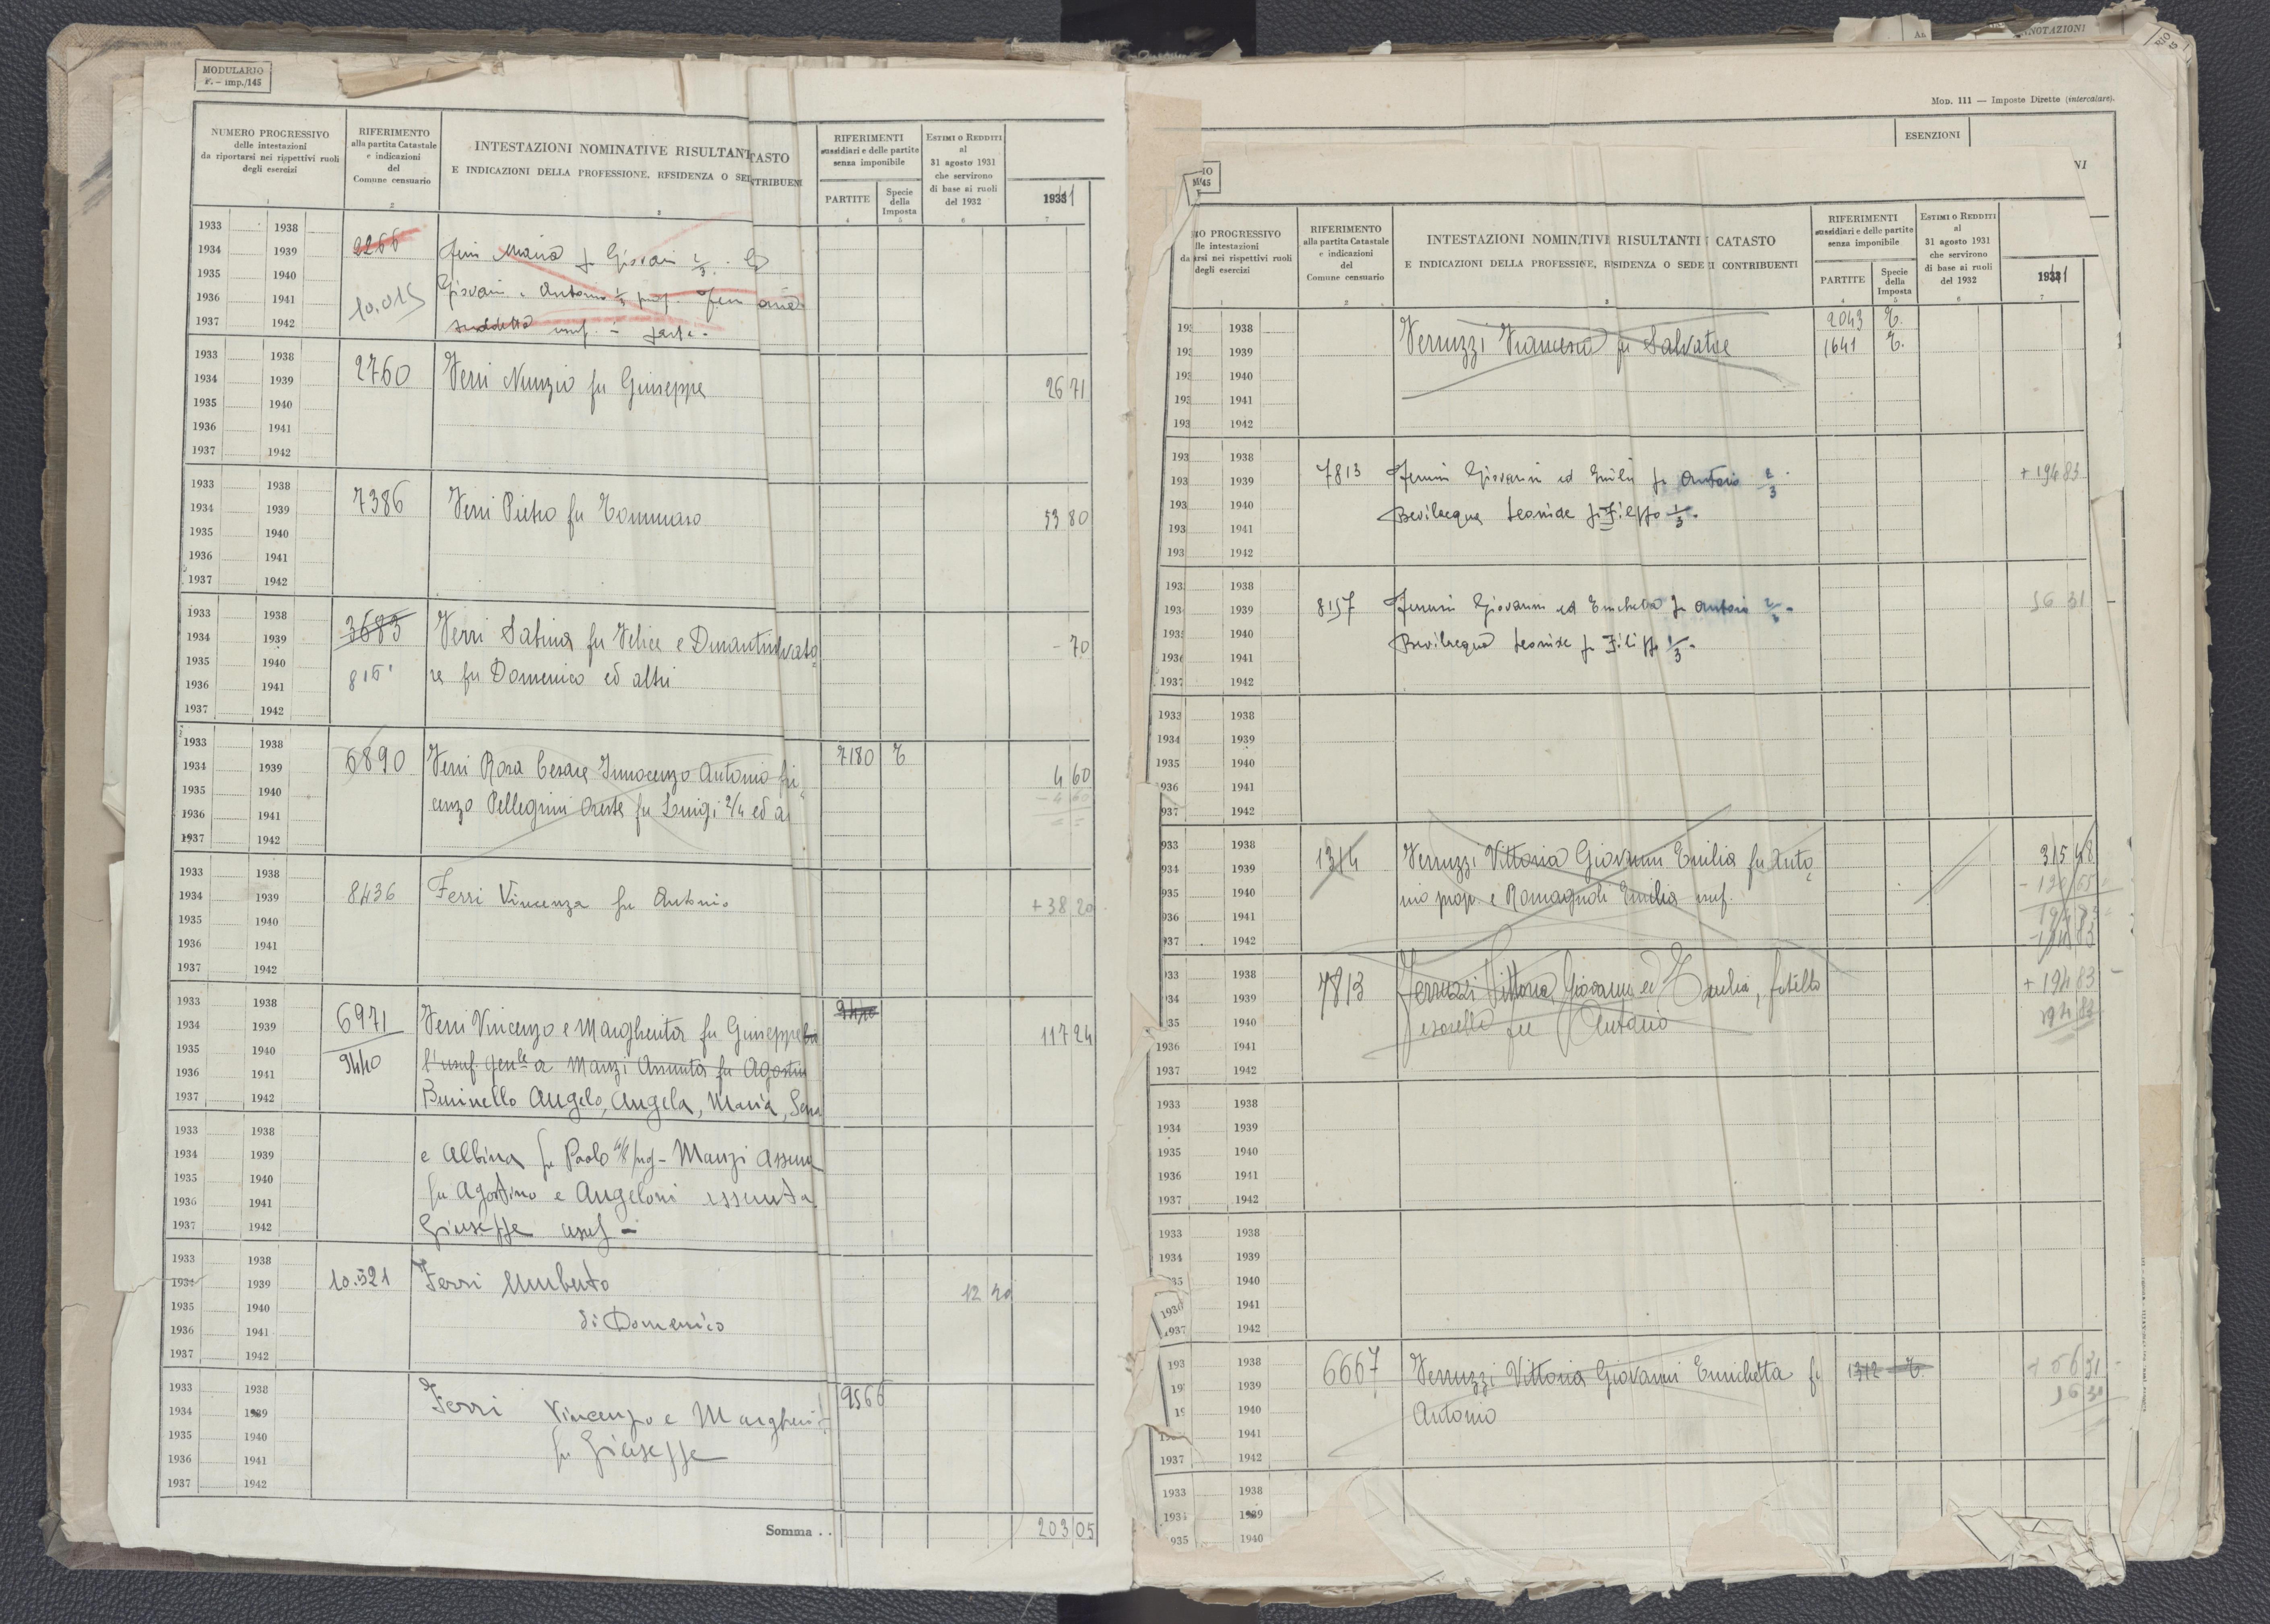 MODULARIO
F. – imp./145
NUMERO PROGRESSIVO
delle intestazioni
da riportarsi nei rispettivi ruoli
degli esercizi
RIFERIMENTO
alla partita Catastale
e indicazioni
del
Comune censuario
INTESTAZIONI NOMINATIVE RISULTANT
E INDICAZIONI DELLA PROFESSIONE, RESIDENZA O SED
TASTO
NTRIBUENTI
RIFERIMENTI
sussidiari e delle partite
senza imponibile
PARTITE
Specie
della
Imposta
ESTIMI O REDDITI
al
31 agosto 1931
che servirono
di base ai ruoli
del 1932
1 2 3 4 5 6 7
1933 1938
1934 1939
1935 1940
1936 1941
1937 1942
2266
10.015
Maria fu Giovanni 2/3
Giovanni e Antonio 1/3
suddetta usuf. in parte -
1933 1938
1934 1939
1935 1940
1936 1941
1937 1942
2760 Ferri Nunzio fu Giuseppe 26 71
1933 1938
1934 1939
1935 1940
1936 1941
1937 1942
7386 Ferri Pietro fu Tommaso 53 80
1933 1938
1934 1939
1935 1940
1936 1941
1937 1942
3683 Ferri Sabina fu Felice e - 70
re fu Domenico ed altri
1933 1938
1934 1939
1935 1940
1936 1941
1937 1942
6890 Ferri Rosa Cesare Innocenzo Antonio 7180 T 4 60
enzo Pellegrini Oreste fu Luigi 2/4 ed a - 4 60
1933 1938
1934 1939
1935 1940
1936 1941
1937 1942
8436 Ferri Vincenza fu Antonio + 38 20
1933 1938
1934 1939
1935 1940
1936 1941
1937 1942
6971 Ferri Vincenzo e Margherita fu Giuseppe 9440 117 24
9440 l'usuf. gen.le a Manzi Assunta fu Agostin
Angelo, Angela, Maria,
1933 1938
1934 1939
1935 1940
1936 1941
1937 1942
e Albina fu Paolo
fu Agostino e Angeloni
Giuseppe usuf -
1933 1938
1934 1939
1935 1940
1936 1941
1937 1942
10.521 Ferri Umberto 12 20
di Domenico
1933 1938
1934 1939
1935 1940
1936 1941
1937 1942
Ferri Vincenzo e Margherit 9566
fu Giuseppe
Somma . . 203 05
MOD. 111 — Imposte Dirette (intercalare).
ESENZIONI
NNOTAZIONI
IO PROGRESSIVO
lle intestazioni
rsi nei rispettivi ruoli
degli esercizi
RIFERIMENTO
alla partita Catastale
e indicazioni
del
Comune censuario
INTESTAZIONI NOMINATIVE RISULTANTI CATASTO
E INDICAZIONI DELLA PROFESSIONE, RESIDENZA O SEDE I CONTRIBUENTI
RIFERIMENTI
sussidiari e delle partite
senza imponibile
PARTITE
Specie
della
Imposta
ESTIMI O REDDITI
al
31 agosto 1931
che servirono
di base ai ruoli
del 1932
1 2 3 4 5 6 7
1938
1939
1940
1941
1942
Ferruzzi Francesco fu Salvatore
2043 T.
1641 T.
1938
1939
1940
1941
1942
7813 Giovanni ed fu Antonio 2/3 + 194 83
Bevilacqua Leonide fu Filippo 1/3 -
1938
1939
1940
1941
1937 1942
8157 Giovanni ed Enrichetta fu Antonio 56 31
Bevilacqua Leonide fu Filippo 1/3 -
1933 1938
1934 1939
1935 1940
1936 1941
1937 1942
1938
1939
1940
1941
1942
1314 Ferruzzi Vittoria Giovanni Emilia fu Anto 315 48
nio prop. e Romagnoli Emilia usuf.
194 83
1938
1939
1940
1936 1941
1937 1942
7813 Ferruzzi Vittoria, Giovanni ed Emilia, fratello + 194 83
e sorelle fu Antonio 194 83
1933 1938
1934 1939
1935 1940
1936 1941
1937 1942
1933 1938
1934 1939
1940
1941
1937 1942
1938
1939
1940
1941
1937 1942
6667 Ferruzzi Vittoria Giovanni Enrichetta fu 1312 T. + 56 31
Antonio 56 31
1933 1938
1934 1939
1935 1940